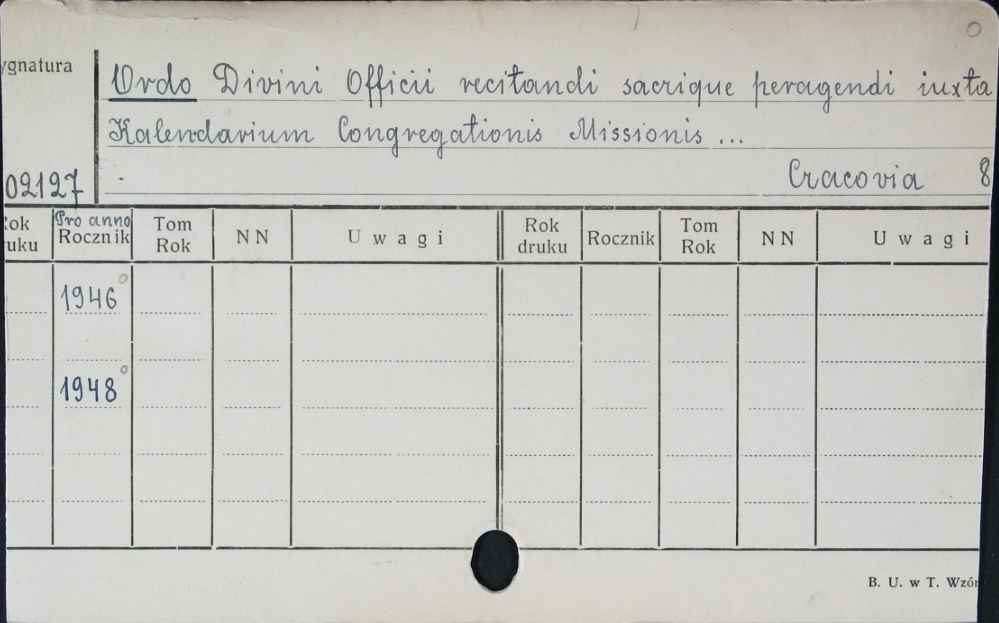 ygnatura
Ordo Divini Officii recitandi sacrique peragendi iuxta
Kalendarium Congregationis Missionis ...
02127
Cracovia 8
Rok druku Pro anno Rocznik Tom Rok NN Uwagi Rok druku Rocznik Tom Rok NN Uwagi
1946
1948
B. U. w T. Wzór